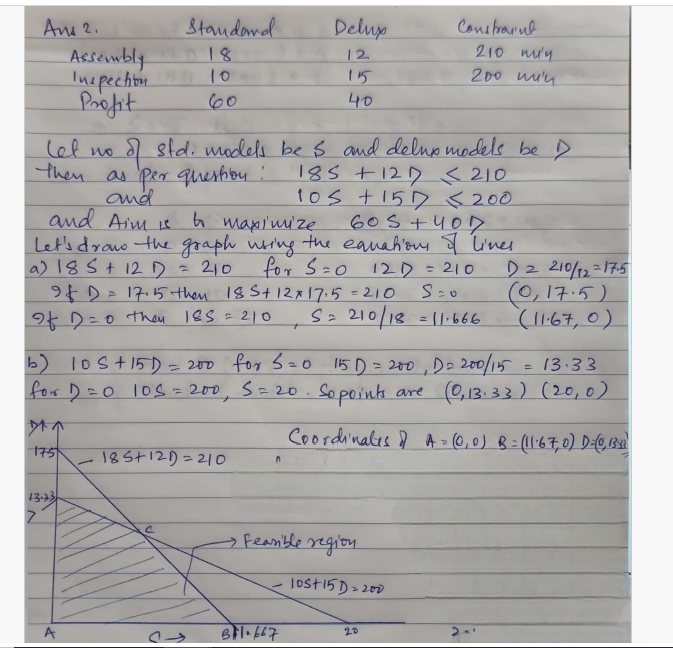 Ans 2. Standard Delux Constraint
Assembly 18 12 210 min
Inspection 10 15 200 min
Profit 60 40
Let no of std. models be S and delux models be D
then as per question: 18S + 12D ≤ 210
and 10S + 15D ≤ 200
and Aim is to maximize 60S + 40D
Let's draw the graph using the equations of lines
a) 18S + 12D = 210 for S=0 12D = 210 D = 210/12 = 17.5
If D = 17.5 then 18S + 12×17.5 = 210 S=0 (0, 17.5)
If D=0 then 18S = 210 , S = 210/18 = 11.666 (11.67, 0)
b) 10S + 15D = 200 for S=0 15D = 200, D = 200/15 = 13.33
for D=0 10S = 200, S=20. So points are (0, 13.33) (20, 0)
D↑
Coordinates of A = (0,0) B = (11.67, 0) D = (0, 13.33)
17.5
18S + 12D = 210
13.33
C
→ Feasible region
10S + 15D = 200
A
→
B 11.667
20
2..